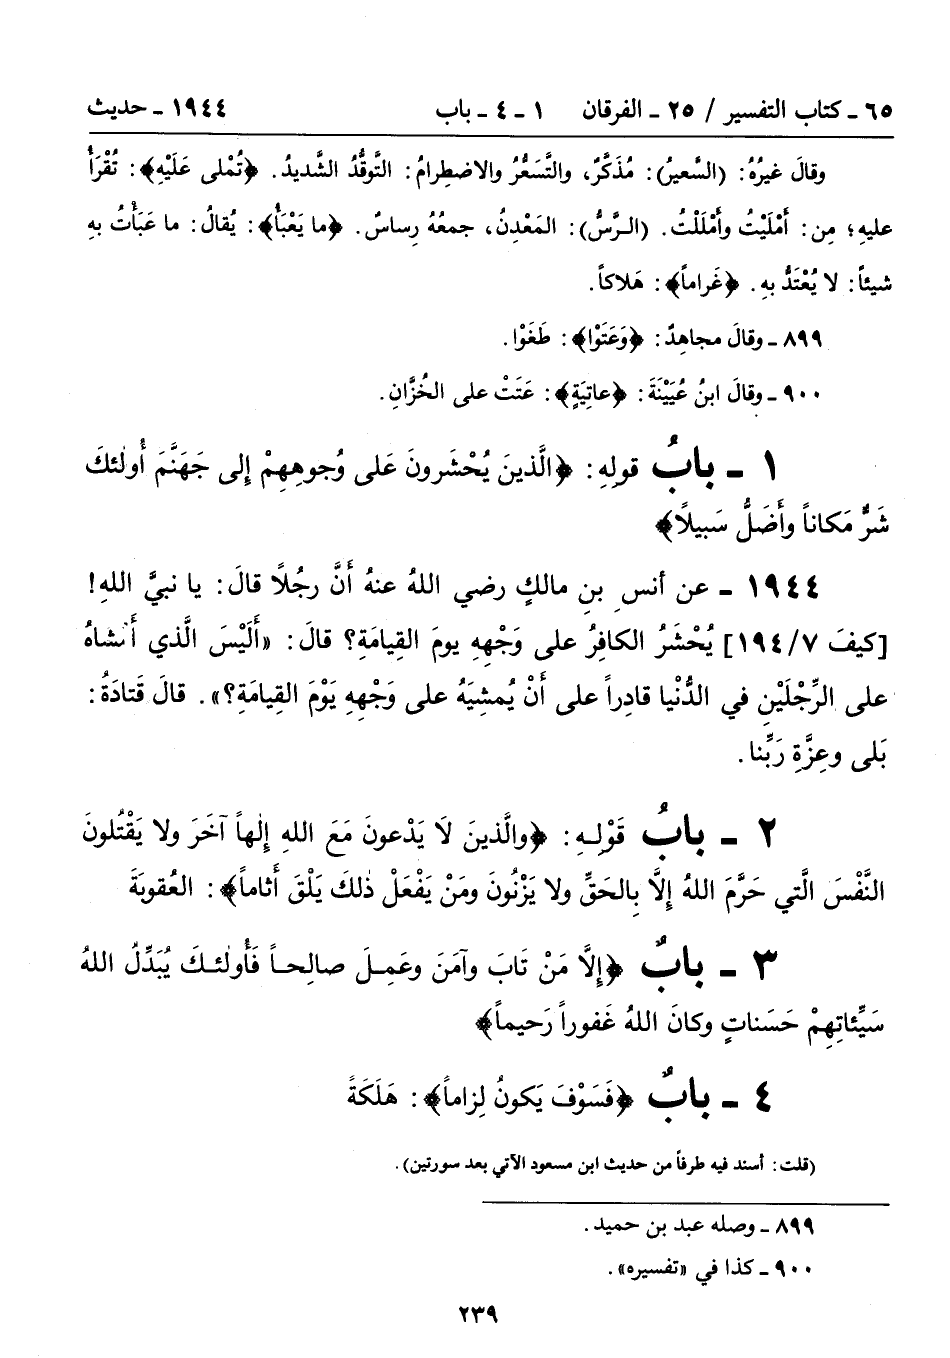 ٦٥ ـ كتاب التفسير / ٢٥ ـ الفرقان ١ ـ ٤ ـ باب ١٩٤٤ ـ حديث
وقالَ غيرُهُ: (السَّعيرُ): مُذَكَّرٌ، والتَّسَعُّرُ والاضطِرامُ: التَّوقُّدُ الشَّديدُ. ﴿تُمْلى عَلَيْهِ﴾: تُقْرَأُ
عليهِ؛ مِن: أَمْلَيْتُ وأَمْلَلْتُ. (الـرَّسُّ): المَعْدِنُ، جمعُهُ رِساسٌ. ﴿ما يَعْبَأُ﴾: يُقالُ: ما عَبَأْتُ بهِ
شيئاً: لا يُعْتَدُّ بهِ. ﴿غَراماً﴾: هَلاكاً.
٨٩٩ ـ وقالَ مجاهِدٌ: ﴿وَعَتَوْا﴾: طَغَوْا.
٩٠٠ ـ وقالَ ابنُ عُيَيْنَةَ: ﴿عاتِيَةٍ﴾: عَتَتْ على الخُزَّانِ.
١ ـ بابُ قولِهِ: ﴿الَّذينَ يُحْشَرونَ عَلى وُجوهِهِمْ إِلى جَهَنَّمَ أُولٰئكَ
شَرٌّ مَكاناً وأَضَلُّ سَبيلاً﴾
١٩٤٤ ـ عن أنسِ بنِ مالكٍ رضي اللهُ عنهُ أَنَّ رجُلاً قالَ: يا نبيَّ اللهِ!
[كيفَ ٧/١٩٤] يُحْشَرُ الكافِرُ على وَجْهِهِ يومَ القِيامَةِ؟ قالَ: «أَلَيْسَ الَّذي أَنْشاهُ
على الرِّجْلَيْنِ في الدُّنْيا قادِراً على أَنْ يُمشِيَهُ على وَجْهِهِ يَوْمَ القِيامَةِ؟». قالَ قَتادَةُ:
بَلى وعِزَّةِ رَبِّنا.
٢ ـ بابُ قَوْلِـهِ: ﴿والَّذينَ لَا يَدْعونَ مَعَ اللهِ إِلٰهاً آخَرَ ولا يَقْتُلونَ
النَّفْسَ الَّتي حَرَّمَ اللهُ إِلَّا بِالحَقِّ ولا يَزْنُونَ ومَنْ يَفْعَلْ ذٰلكَ يَلْقَ أَثاماً﴾: العُقوبَةَ
٣ ـ بابٌ ﴿إِلَّا مَنْ تَابَ وآمَنَ وعَمِـلَ صالِحـاً فَأُولٰئـكَ يُبَدِّلُ اللهُ
سَيِّئاتِهِمْ حَسَناتٍ وكانَ اللهُ غَفوراً رَحيماً﴾
٤ ـ بابٌ ﴿فَسَوْفَ يَكونُ لِزاماً﴾: هَلَكَةً
(قلت: أسند فيه طرفاً من حديث ابن مسعود الآتي بعد سورتين).
٨٩٩ ـ وصله عبد بن حميد.
٩٠٠ ـ كذا في «تفسيره».
٢٣٩